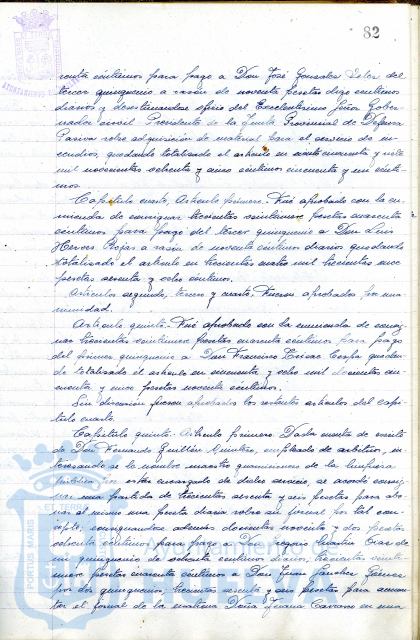 82
renta céntimos para pago a Don José Gonzalez Soler del
tercer quinquenio a razón de noventa pesetas digo centimos
diarios y desestimandose oficio del Excelentísimo Señor Gober-
nador civil Presidente de la Junta Provincial de Defensa
Pasiva sobre adquisición de material para el servicio de in-
cendios, quedando totalizado el artículo en ciento cuarenta y siete
mil novecientas ochenta y cinco centimos cincuenta y un centi-
mos.
Capítulo cuarto. Artículo primero. Fué aprobado con la en-
mienda de consignar trescientas veintinueve pesetas cuarenta
centimos para pago del tercer quinquenio a Don Luis
Herves Rojas a razón de noventa centimos diarios quedando
totalizado el artículo en trescientas cuatro mil trescientas once
pesetas sesenta y ocho centimos.
Artículos segundo, tercero y cuarto. Fueron aprobados por una-
nimidad.
Artículo quinto. Fué aprobado con la enmienda de consig-
nar trescientas veintinueve pesetas cuarenta centimos para pago
del primer quinquenio a Don Francisco quedan-
do totalizado el artículo en cincuenta y ocho mil doscientas cin-
cuenta y once pesetas noventa centimos.
Sin discusión fueron aprobados los restantes artículos del capí-
tulo cuarto.
Capítulo quinto. Artículo primero. Dada cuenta de escrito
de Don Fernando Guillén Montero, empleado de arbitrios, in-
teresando se le nombre maestro de la limpieza
pública, por estar encargado de dicho servicio, se acordó consig-
nar una partida de trescientas sesenta y seis pesetas para abo-
nar al mismo una peseta diaria sobre su jornal por tal con-
cepto, consignandose además doscientas noventa y dos pesetas
ochenta centimos para pago a D. Gregorio Martín Cras de
un quinquenio de ochenta centimos diarios, trescientas veinti-
nueve pesetas cuarenta centimos a Don Juan Sanchez Gómez
por dos quinquenios, trescientas sesenta y seis pesetas para aumen-
tar el jornal de la Doña Juana Cavano en una
AYUNTAMIENTO
PORTUS MARIS
Ayuntamiento de